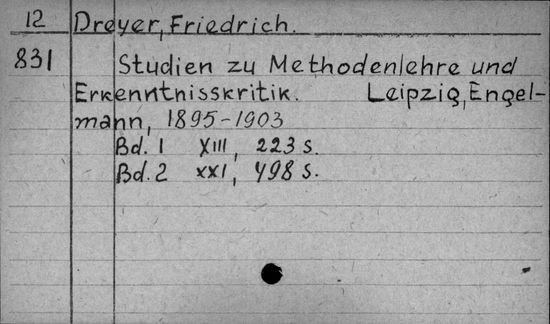 12 Dreyer, Friedrich.
831 Studien zu Methodenlehre und
Erkenntnisskritik. Leipzig, Engel-
mann, 1895-1903
Bd. 1 XIII, 223 S.
Bd. 2 XXI, 498 S.